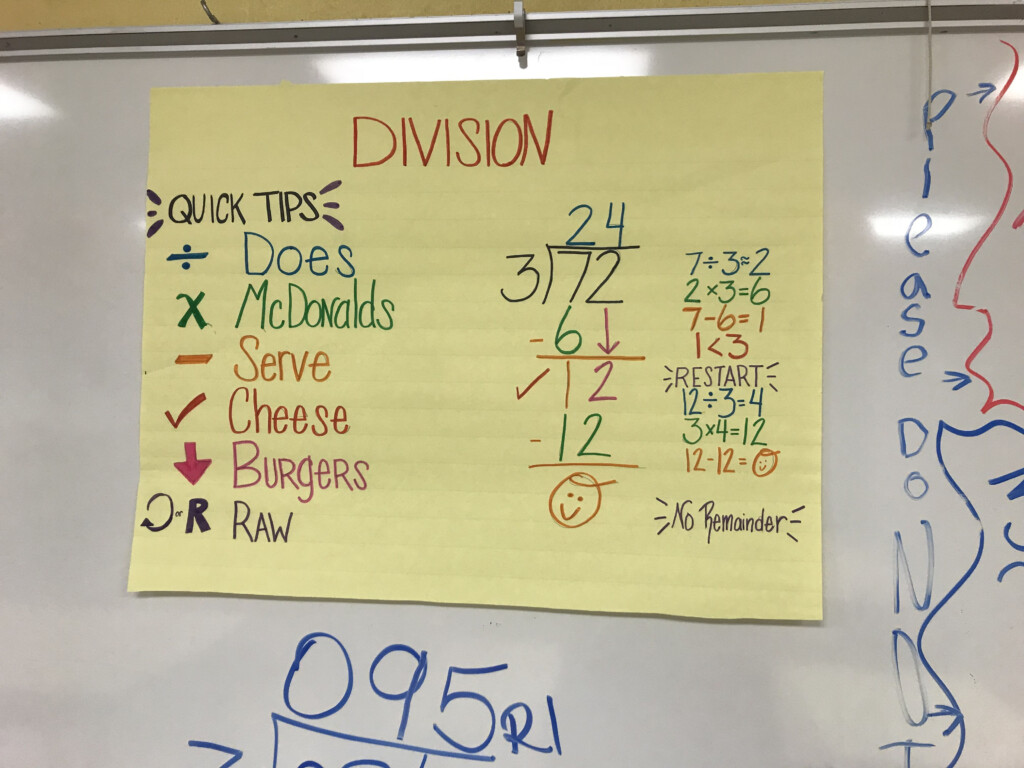 DIVISION
QUICK TIPS
÷ Does
X McDonalds
- Serve
✓ Cheese
↓ Burgers
or R RAW
24
3)72
- 6↓
✓ 12
- 12
7÷3≈2
2×3=6
7-6=1
1<3
RESTART
12÷3=4
3×4=12
12-12=
No Remainder
095R1
Please
Do
NOT